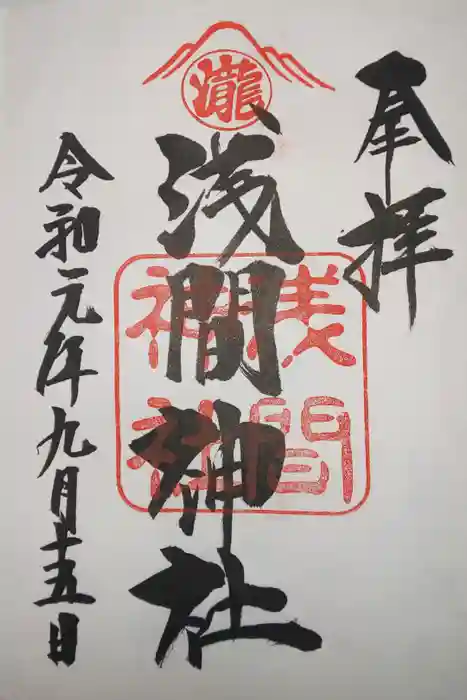 奉拝
瀧
浅間神社
浅間神社
令和元年九月十五日